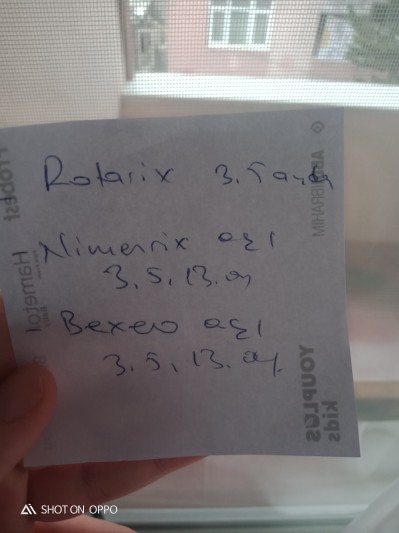 Rotarix 3.5 ayda
Nimenrix aşı
3, 5, 13. ay
Bexero aşı
3, 5, 13. ay
Probest
Hametol
YOUPLUS
kids
SHOT ON OPPO